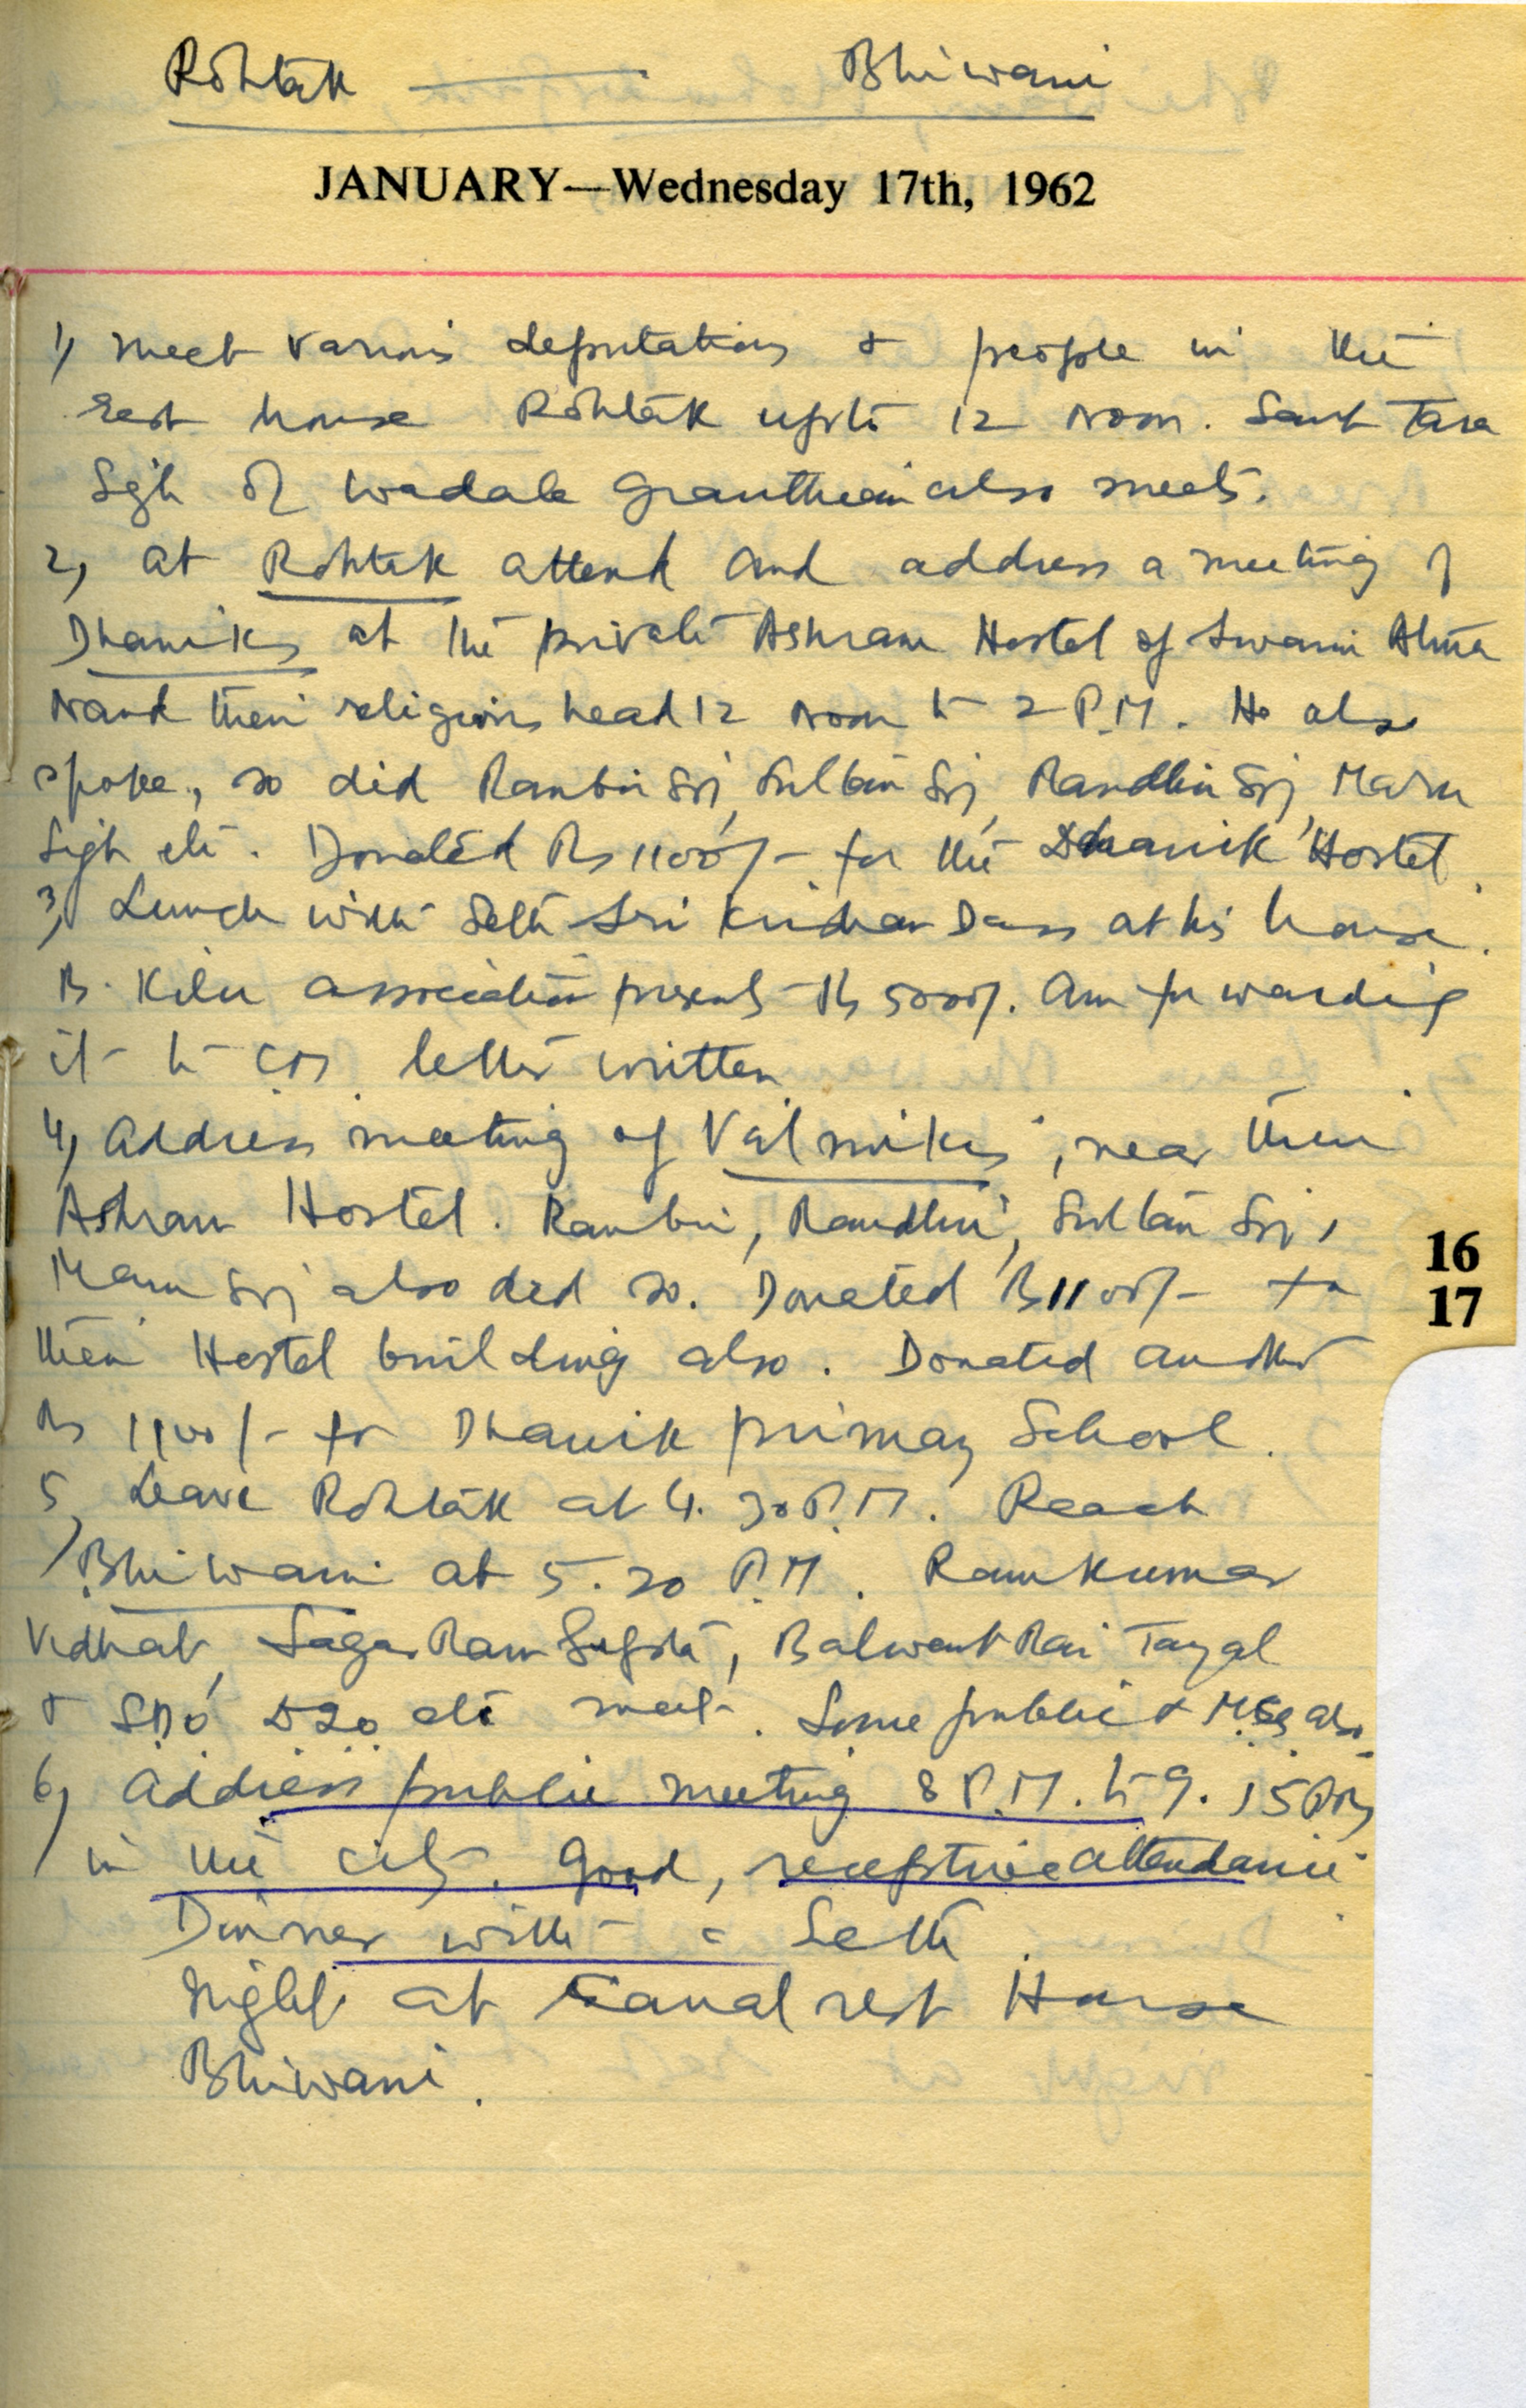 Rohtak — Bhiwani
JANUARY—Wednesday 17th, 1962
1) Meet various deputations & people in the
rest house Rohtak upto 12 noon. Sant Tara
Sgh of also meets.
2) At Rohtak attend and address a meeting of
Dhaniks at the private Ashram Hostel of Swami Atma
Nand their religious head 12 noon to 2 P.M. He also
spoke, so did Ranbir Sgj, Sultan Sgj, Randhir Sgj, Maru
Sigh etc. Donated Rs 1100/- for the Dhanik Hostel.
3) Lunch with Seth Sri Kishan Dass at his house.
B. Kiln association presents Rs 5000/. Am forwarding
it to C.M. letter written
4) Address meeting of Valmikis, near their
Ashram Hostel. Ranbir, Randhir, Sultan Sgj,
Maru Sgj also did so. Donated Rs 1100/- to
their Hostel building also. Donated another
Rs 1100/- to Dhanik primary School.
5) Leave Rohtak at 4.30 P.M. Reach
Bhiwani at 5.20 P.M. Ram Kumar
Sagar Ram Gupta, Balwant Rai Tayal
& SDO etc meet. Some public & also
6) Address public meeting 8 P.M. to 9.15 PM
in the city. Good, receptive attendance
Dinner with a Seth.
Night at Canal rest House
Bhiwani.
16
17